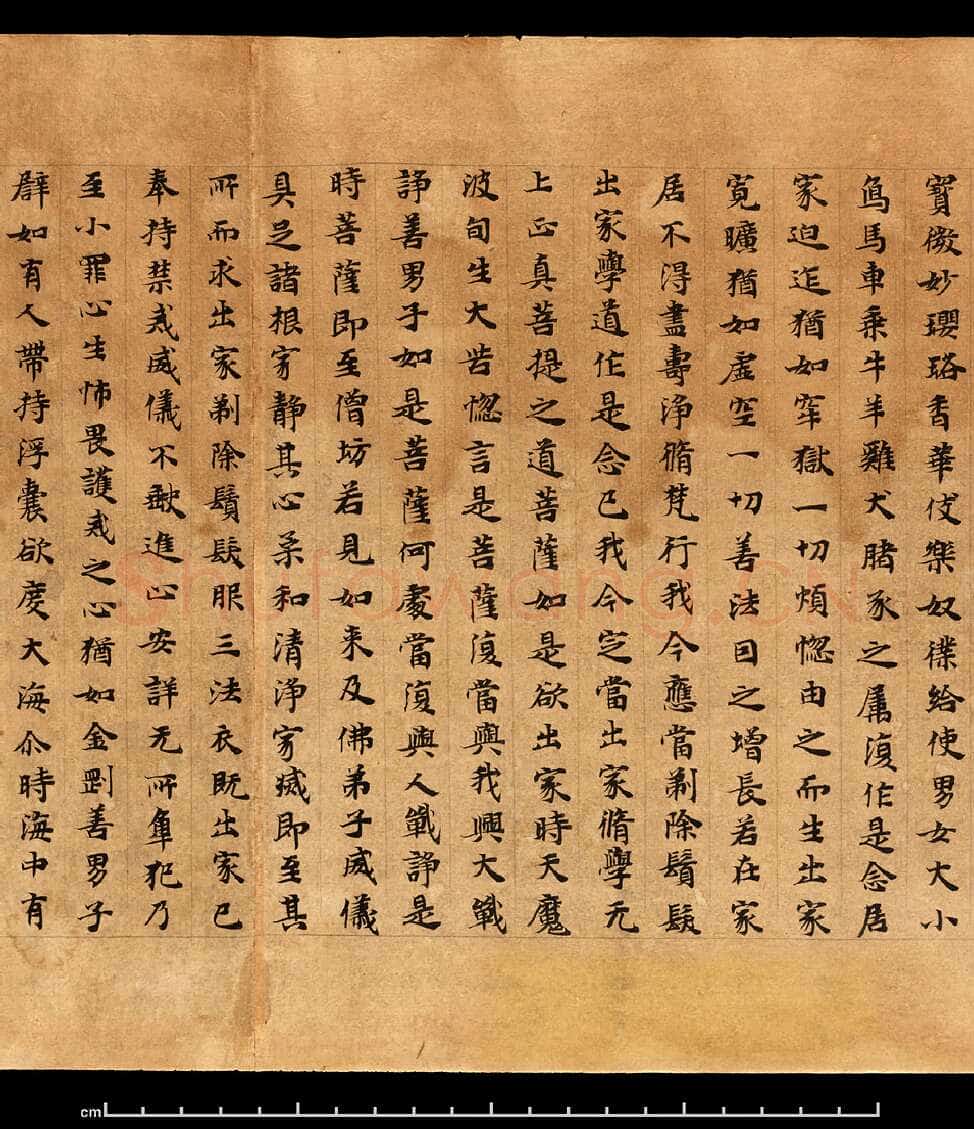 寶微妙瓔珞香華伎樂奴僕給使男女大小
鳥馬車乘牛羊雞犬賭豕之屬復作是念居
家迫迮猶如牢獄一切煩惚由之而生出家
寬曠猶如虛空一切善法因之增長若在家
居不得盡壽淨脩梵行我今應當剃除鬚髮
出家學道作是念已我今定當出家脩學无
上正真菩提之道菩薩如是欲出家時天魔
波旬生大苦惚言是菩薩復當與我興大戰
諍善男子如是菩薩何處當復與人戰諍是
時菩薩即至僧坊若見如来及佛弟子威儀
具足諸根家静其心柔和清淨家烕即至其
所而求出家剃除鬚髮服三法衣既出家已
奉持禁戒威儀不缺進止安詳无所犯乃
至小罪心生怖畏護戒之心猶如金剛善男子
辟如有人帶持浮囊欲度大海尒時海中有
Shufawang.cn
cm